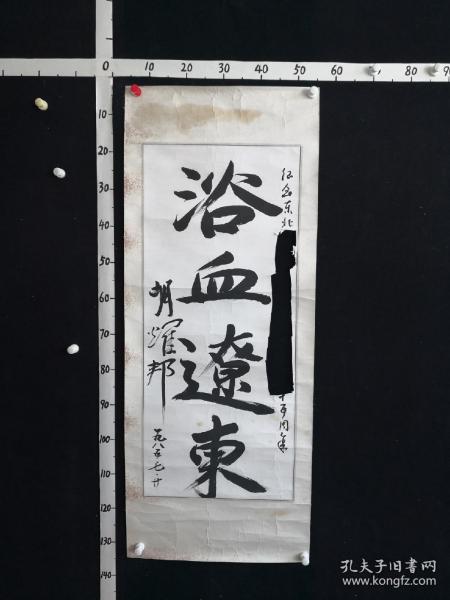 0 10 20 30 40 50 60 70 80 90
10
20
30
40
50
60
70
80
90
100
110
120
130
140
纪念东北
十周年
浴血遼東
胡耀邦
一九八五.七.廿
孔夫子旧书网
www.kongfz.com